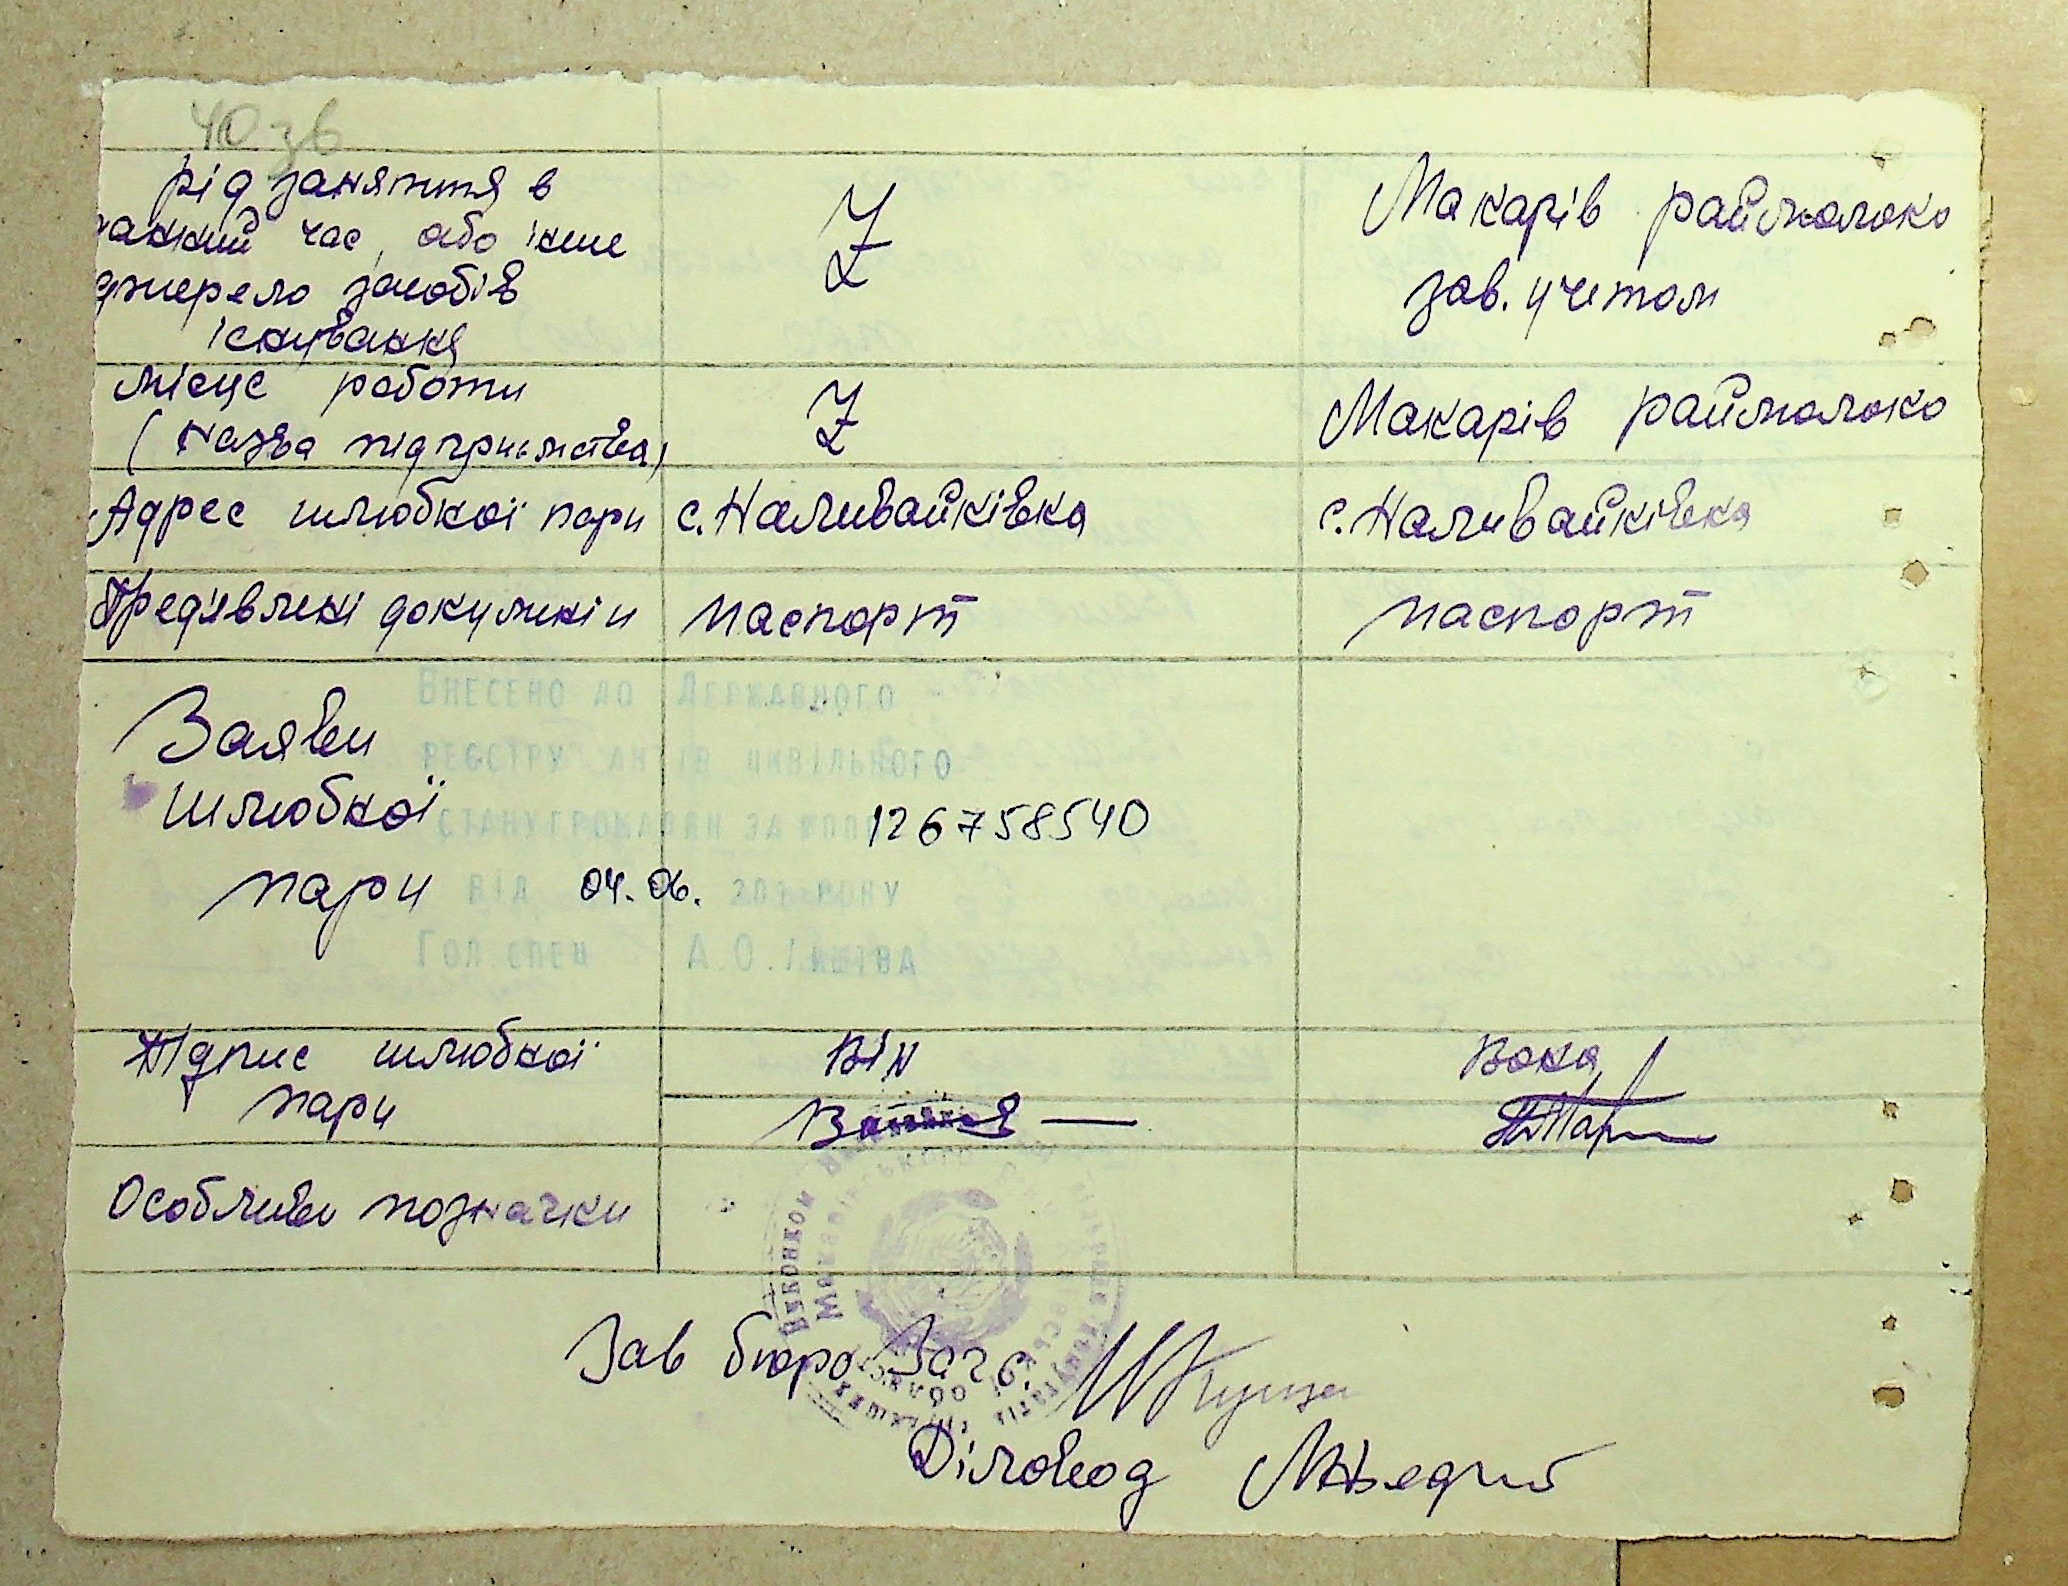 40 зв
рід заняття в
даний час, або інше
джерело засобів
існування
Макарів райрмолоко
зав. учетом
місце роботи
(назва підприємства)
Макарів райрмолоко
Адрес шлюбної пари
с. Наливайківка
с. Наливайківка
Предявлені документи
паспорт
паспорт
ВНЕСЕНО ДО ДЕРЖАВНОГО
РЕЄСТРУ АКТІВ ЦИВІЛЬНОГО
СТАНУ ГРОМАДЯН ЗА
126758540
ВІД 04.06. РОКУ
ГОЛ. СПЕЦ А.О.
Заяви
шлюбної
пари
Підпис шлюбної
пари
Він
Вона
Особливи позначки
Зав бюро Загс.
Діловод